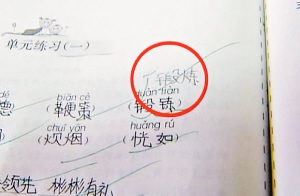 单元练习(一)
锻炼
biān cè duàn liàn
德 (鞭策) (锻
chuī yān huǎng rú
(炊烟) (恍如)
领先 彬彬有礼